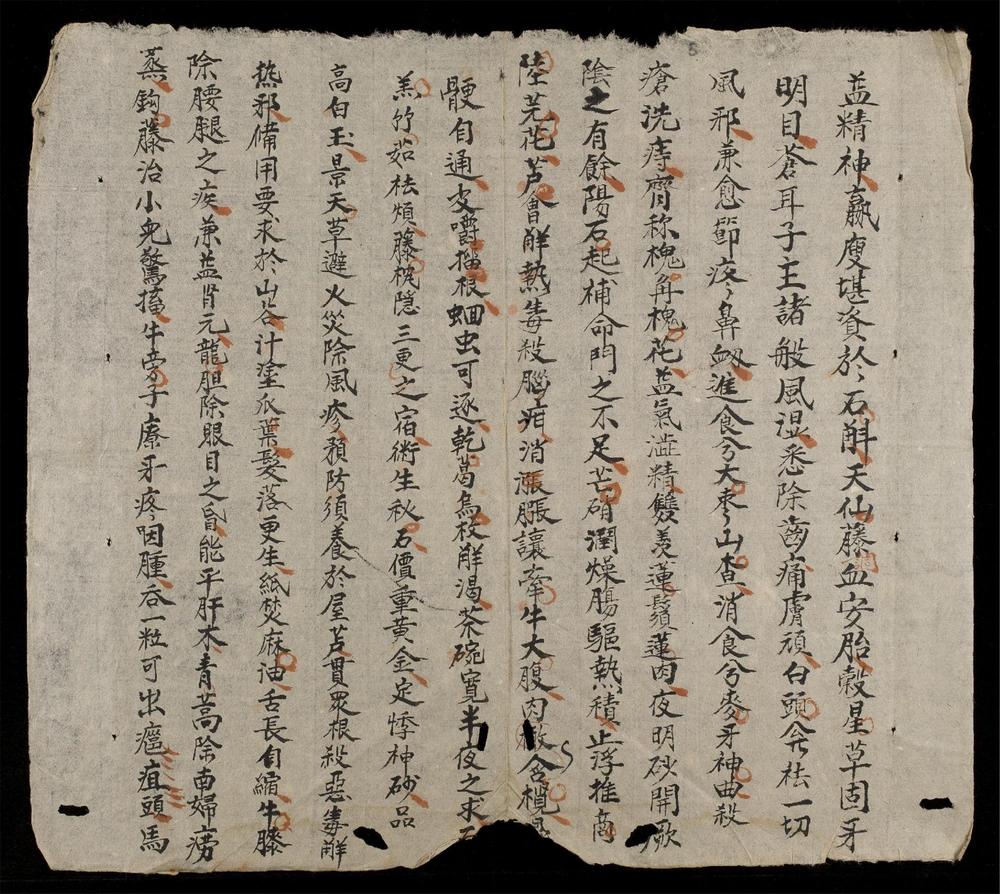 益精神羸廋堪資於〻石斛天仙藤血安胎穀星草固牙
明目蒼耳子主諸般風湿悉除齒痛膚頑白頭公祛一切
風邪兼愈節疼〻鼻衂進食兮大枣〻山查消食兮麥牙神曲殺
瘡洗痔齊称槐角槐花益氣澁精雙羡蓮鬚蓮肉夜明砂開厥
陰之有餘陽石起補命門之不足芒硝潤燥腸驅熱積止浮推商
陸芫花芦會觧熱毒殺腦疳消漲脹讓牽牛大腹肉橄含欖
骾自通皮嚼榴根蛔虫可逐乾葛烏枚觧渴茶碗寛半夜之求
羔竹茹祛煩藤枕隠三更之宿術生秋石價重黃金定悸神砂品
高白玉景天草避火災除風疹預防須養於屋苫貫衆根殺惡毒觧
热邪備用要求於山谷汁塗瓜葉髮落更生紙焚麻油舌長自縮牛膝
除腰腿之疾兼益肾元龍胆除眼目之昏能平肝木青蒿除南婦癆
蒸鈎藤治小兒驚搐牛旁子療牙疼因腫吞一粒可出癰疽頭馬